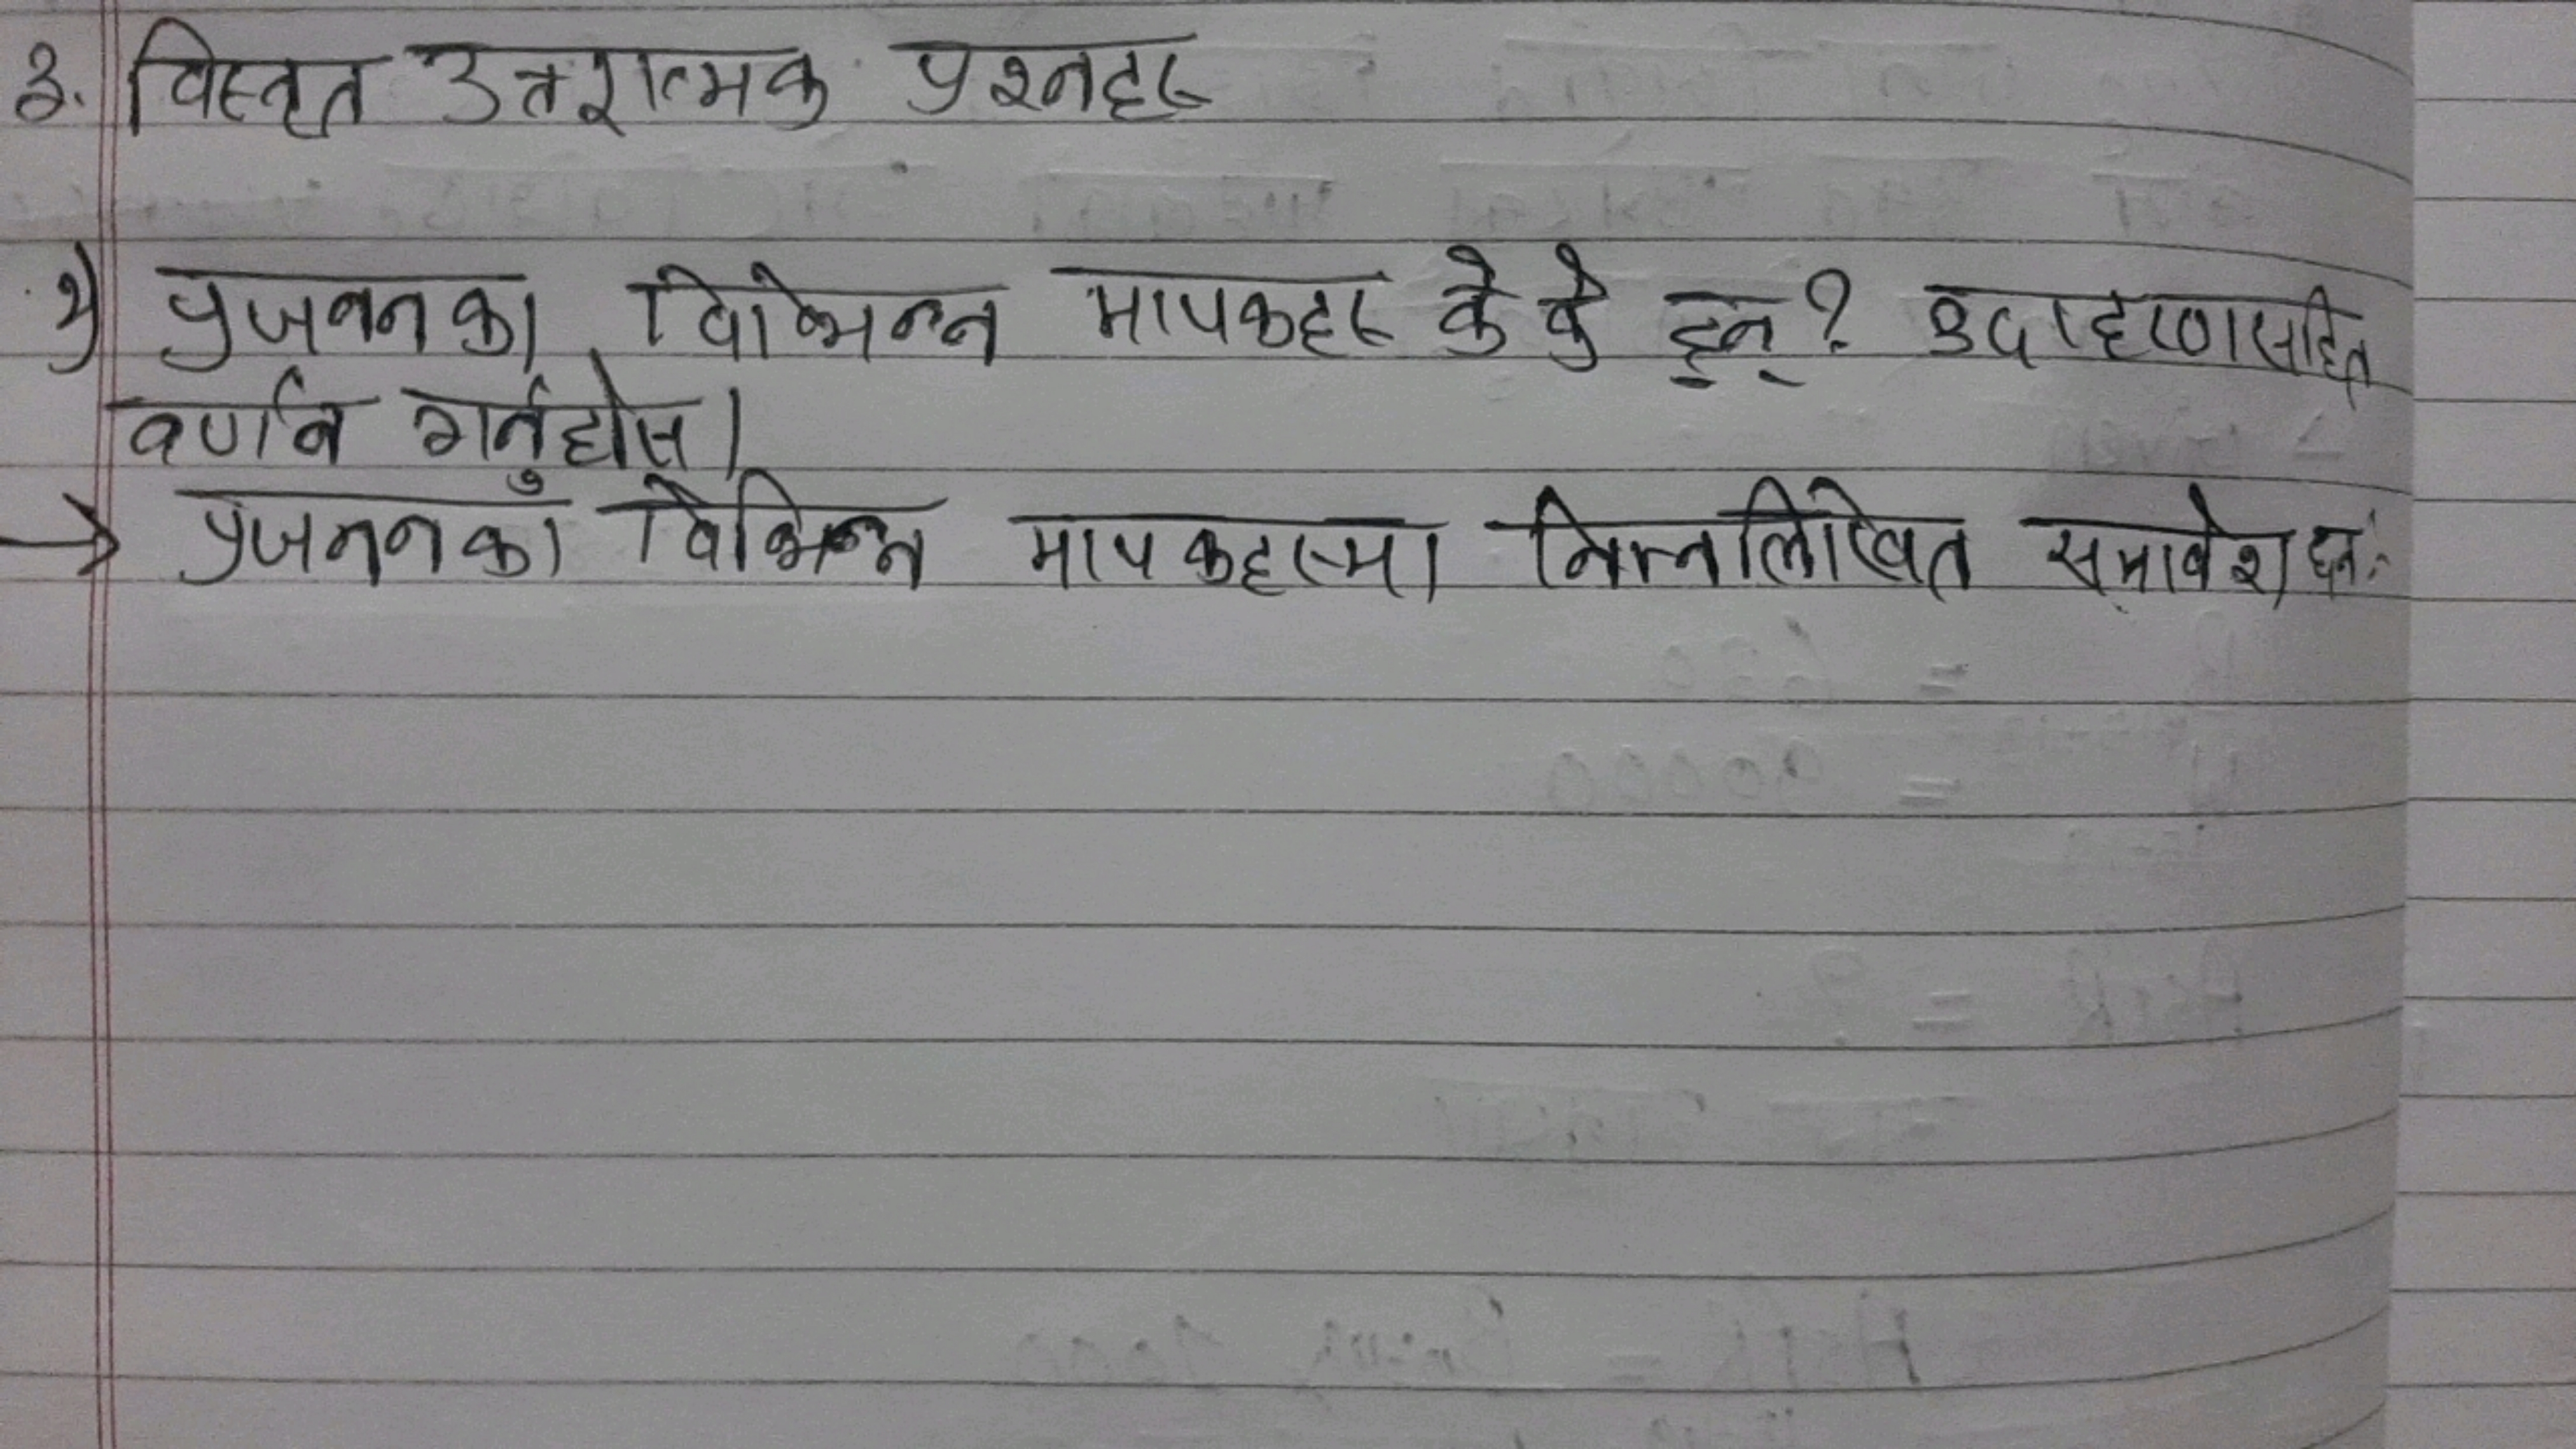 ३. विस्तृत उत्तरात्मक प्रश्नहरू
१) प्रजननका विभिन्न मापकहरू के के हुन्? उदाहरणसहित
वर्णन गर्नुहोस्।
→ प्रजननका विभिन्न मापकहरूमा निम्नलिखित समावेश छन्: